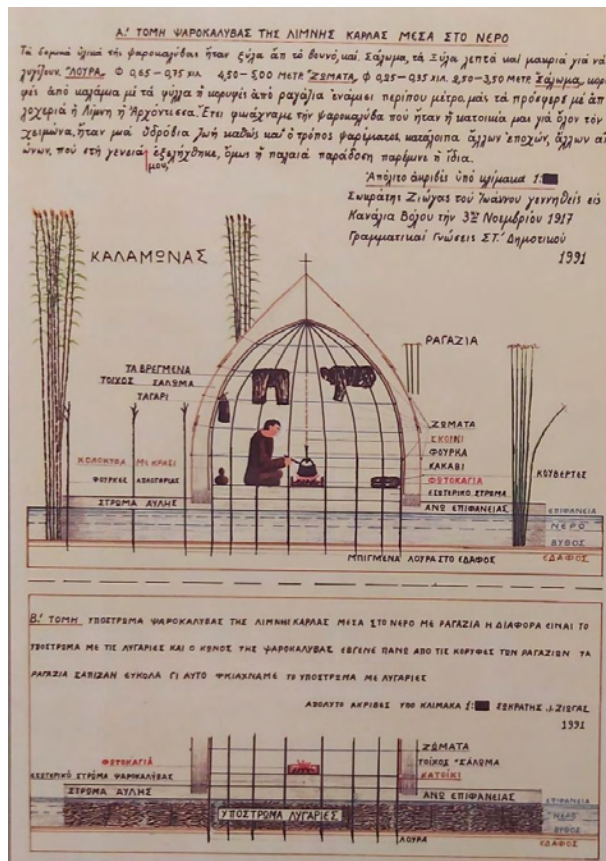 Α.' ΤΟΜΗ ΨΑΡΟΚΑΛΥΒΑΣ ΤΗΣ ΛΙΜΝΗΣ ΚΑΡΛΑΣ ΜΕΣΑ ΣΤΟ ΝΕΡΟ
Τά δομικά ὑλικά τῆς ψαροκαλύβας ἦταν ξύλα ἀπ τό βουνό, καί Σάλωμα, τά Ξύλα λεπτά καί μακριά γιά νά
λυγίζουν. "ΛΟΥΡΑ. Φ 0,65-0,75 ΧΙΛ. 4,50-5,00 ΜΕΤΡ. "ΖΩΜΑΤΑ, Φ 0,25-0,35 ΧΙΛ. 2,50-3,50 ΜΕΤΡ. Σάλωμα, κορυ-
φές ἀπό καλάμια μέ τά φύλλα ἤ κορυφές ἀπό ραγάζια ἑνάμισι περίπου μέτρο, μᾶς τά πρόσφερε μέ ἁπ-
λοχεριά ἡ Λίμνη ἡ Ἀρχόντισσα. Ἔτσι φτιάχναμε τήν ψαροκαλύβα πού ἦταν ἡ κατοικία μας γιά ὅλον τόν
χειμώνα, ἦταν μιά ὑδρόβια ζωή καθώς καί ὁ τρόπος ψαρέματος, κατάλοιπα ἄλλων ἐποχῶν, ἄλλων αἰ-
ώνων, πού στή γενειά μου, ἐξελήχθηκε, ὅμως ἡ παλαιά παράδοση παρέμινε ἡ ἴδια.
Ἀπόλιτο ἀκριβές ὑπό κλίμακα 1:
Σωκράτης Ζιώγας τοῦ Ἰωάννου γεννηθείς εἰς
Κανάλια Βόλου τήν 3ην Νοεμβρίου 1917
Γραμματικαί Γνώσεις ΣΤ.' Δημοτικοῦ
1991
ΚΑΛΑΜΩΝΑΣ
ΡΑΓΑΖΙΑ
ΤΑ ΒΡΕΓΜΕΝΑ
ΤΟΙΧΟΣ ΣΑΛΩΜΑ
ΤΑΓΑΡΙ
ΖΩΜΑΤΑ
ΣΚΟΙΝΙ
ΦΟΥΡΚΑ
ΚΑΚΑΒΙ
ΦΩΤΟΚΑΓΙΑ
ΕΣΩΤΕΡΙΚΟ ΣΤΡΩΜΑ
ΚΟΛΟΚΥΘΑ ΜΕ ΚΡΑΣΙ
ΦΟΥΡΚΕΣ
ΚΟΥΒΕΡΤΕΣ
ΣΤΡΩΜΑ ΑΥΛΗΣ
ΑΝΩ ΕΠΙΦΑΝΕΙΑΣ
ΕΠΙΦΑΝΕΙΑ
ΝΕΡΟ
ΒΥΘΟΣ
ΜΠΙΓΜΕΝΑ ΛΟΥΡΑ ΣΤΟ ΕΔΑΦΟΣ
ΕΔΑΦΟΣ
Β.' ΤΟΜΗ ΥΠΟΣΤΡΩΜΑ ΨΑΡΟΚΑΛΥΒΑΣ ΤΗΣ ΛΙΜΝΗΣ ΚΑΡΛΑΣ ΜΕΣΑ ΣΤΟ ΝΕΡΟ ΜΕ ΡΑΓΑΖΙΑ Η ΔΙΑΦΟΡΑ ΕΙΝΑΙ ΤΟ
ΥΠΟΣΤΡΩΜΑ ΜΕ ΤΙΣ ΛΥΓΑΡΙΕΣ ΚΑΙ Ο ΚΩΝΟΣ ΤΗΣ ΨΑΡΟΚΑΛΥΒΑΣ ΕΒΓΕΝΕ ΠΑΝΩ ΑΠΟ ΤΙΣ ΚΟΡΥΦΕΣ ΤΩΝ ΡΑΓΑΖΙΩΝ ΤΑ
ΡΑΓΑΖΙΑ ΣΑΠΙΖΑΝ ΕΥΚΟΛΑ ΓΙ ΑΥΤΟ ΦΚΙΑΧΝΑΜΕ ΤΟ ΥΠΟΣΤΡΩΜΑ ΜΕ ΛΥΓΑΡΙΕΣ
ΑΠΟΛΥΤΟ ΑΚΡΙΒΕΣ ΥΠΟ ΚΛΙΜΑΚΑ 1: ΣΩΚΡΑΤΗΣ .Ι. ΖΙΩΓΑΣ
1991
ΖΩΜΑΤΑ
ΦΩΤΟΚΑΓΙΑ
ΤΟΙΧΟΣ "ΣΑΛΩΜΑ
ΕΣΩΤΕΡΙΚΟ ΣΤΡΩΜΑ ΨΑΡΟΚΑΛΥΒΑΣ
ΚΑΤΟΙΚΙ
ΣΤΡΩΜΑ ΑΥΛΗΣ
ΑΝΩ ΕΠΙΦΑΝΕΙΑΣ
ΕΠΙΦΑΝΕΙΑ
ΥΠΟΣΤΡΩΜΑ ΛΥΓΑΡΙΕΣ
ΝΕΡΟ
ΒΥΘΟΣ
ΛΟΥΡΑ
ΕΔΑΦΟΣ